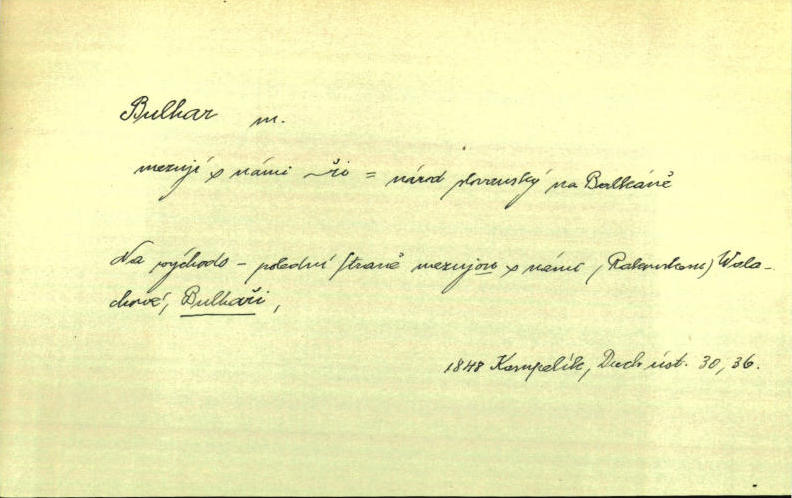 Bulhar m.
mezují s námi ~ři = národ slovanský na Balkáně
Na východo-polední straně mezujou s námi (Rakouskem) Wala-
chové, Bulhaři,
1848 Kampelík, Duch úst. 30, 36.